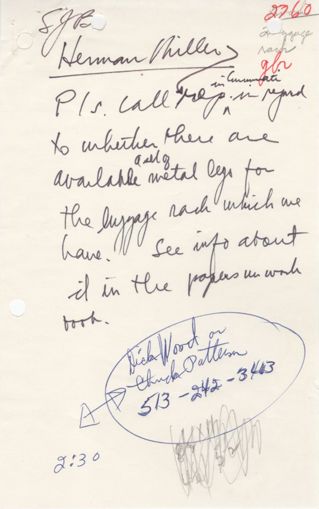 SJB
2760
luggage
rack
gbr
Herman Miller
in Cincinnati
Pls. call rep. in regard
to whether there are
a set of
available metal legs for
the luggage rack which we
have. See info about
it in the papers in work
book.
Dick Wood or
Chuck Patterson
513-242-3413
2:30